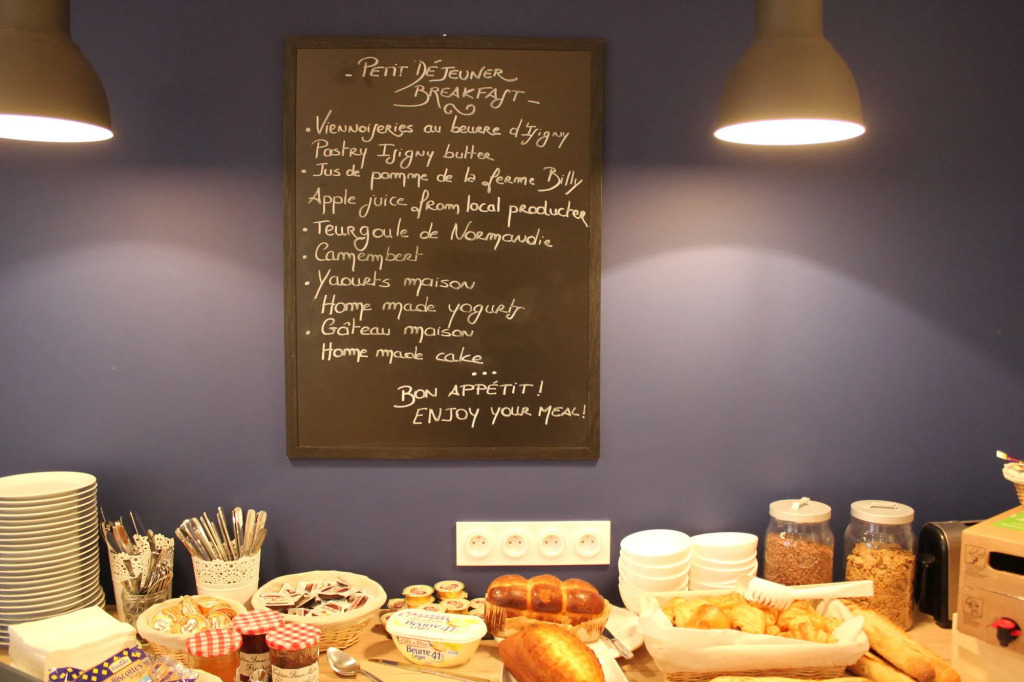 - PETIT DÉJEUNER
BREAKFAST -
• Viennoiseries au beurre d'Isigny
Pastry Isigny butter
• Jus de pomme de la ferme Billy
Apple juice from local producter
• Teurgoule de Normandie
• Camembert
• Yaourts maison
Home made yogurts
• Gâteau maison
Home made cake
...
BON APPÉTIT !
ENJOY YOUR MEAL !
Beurre
Léger 41%